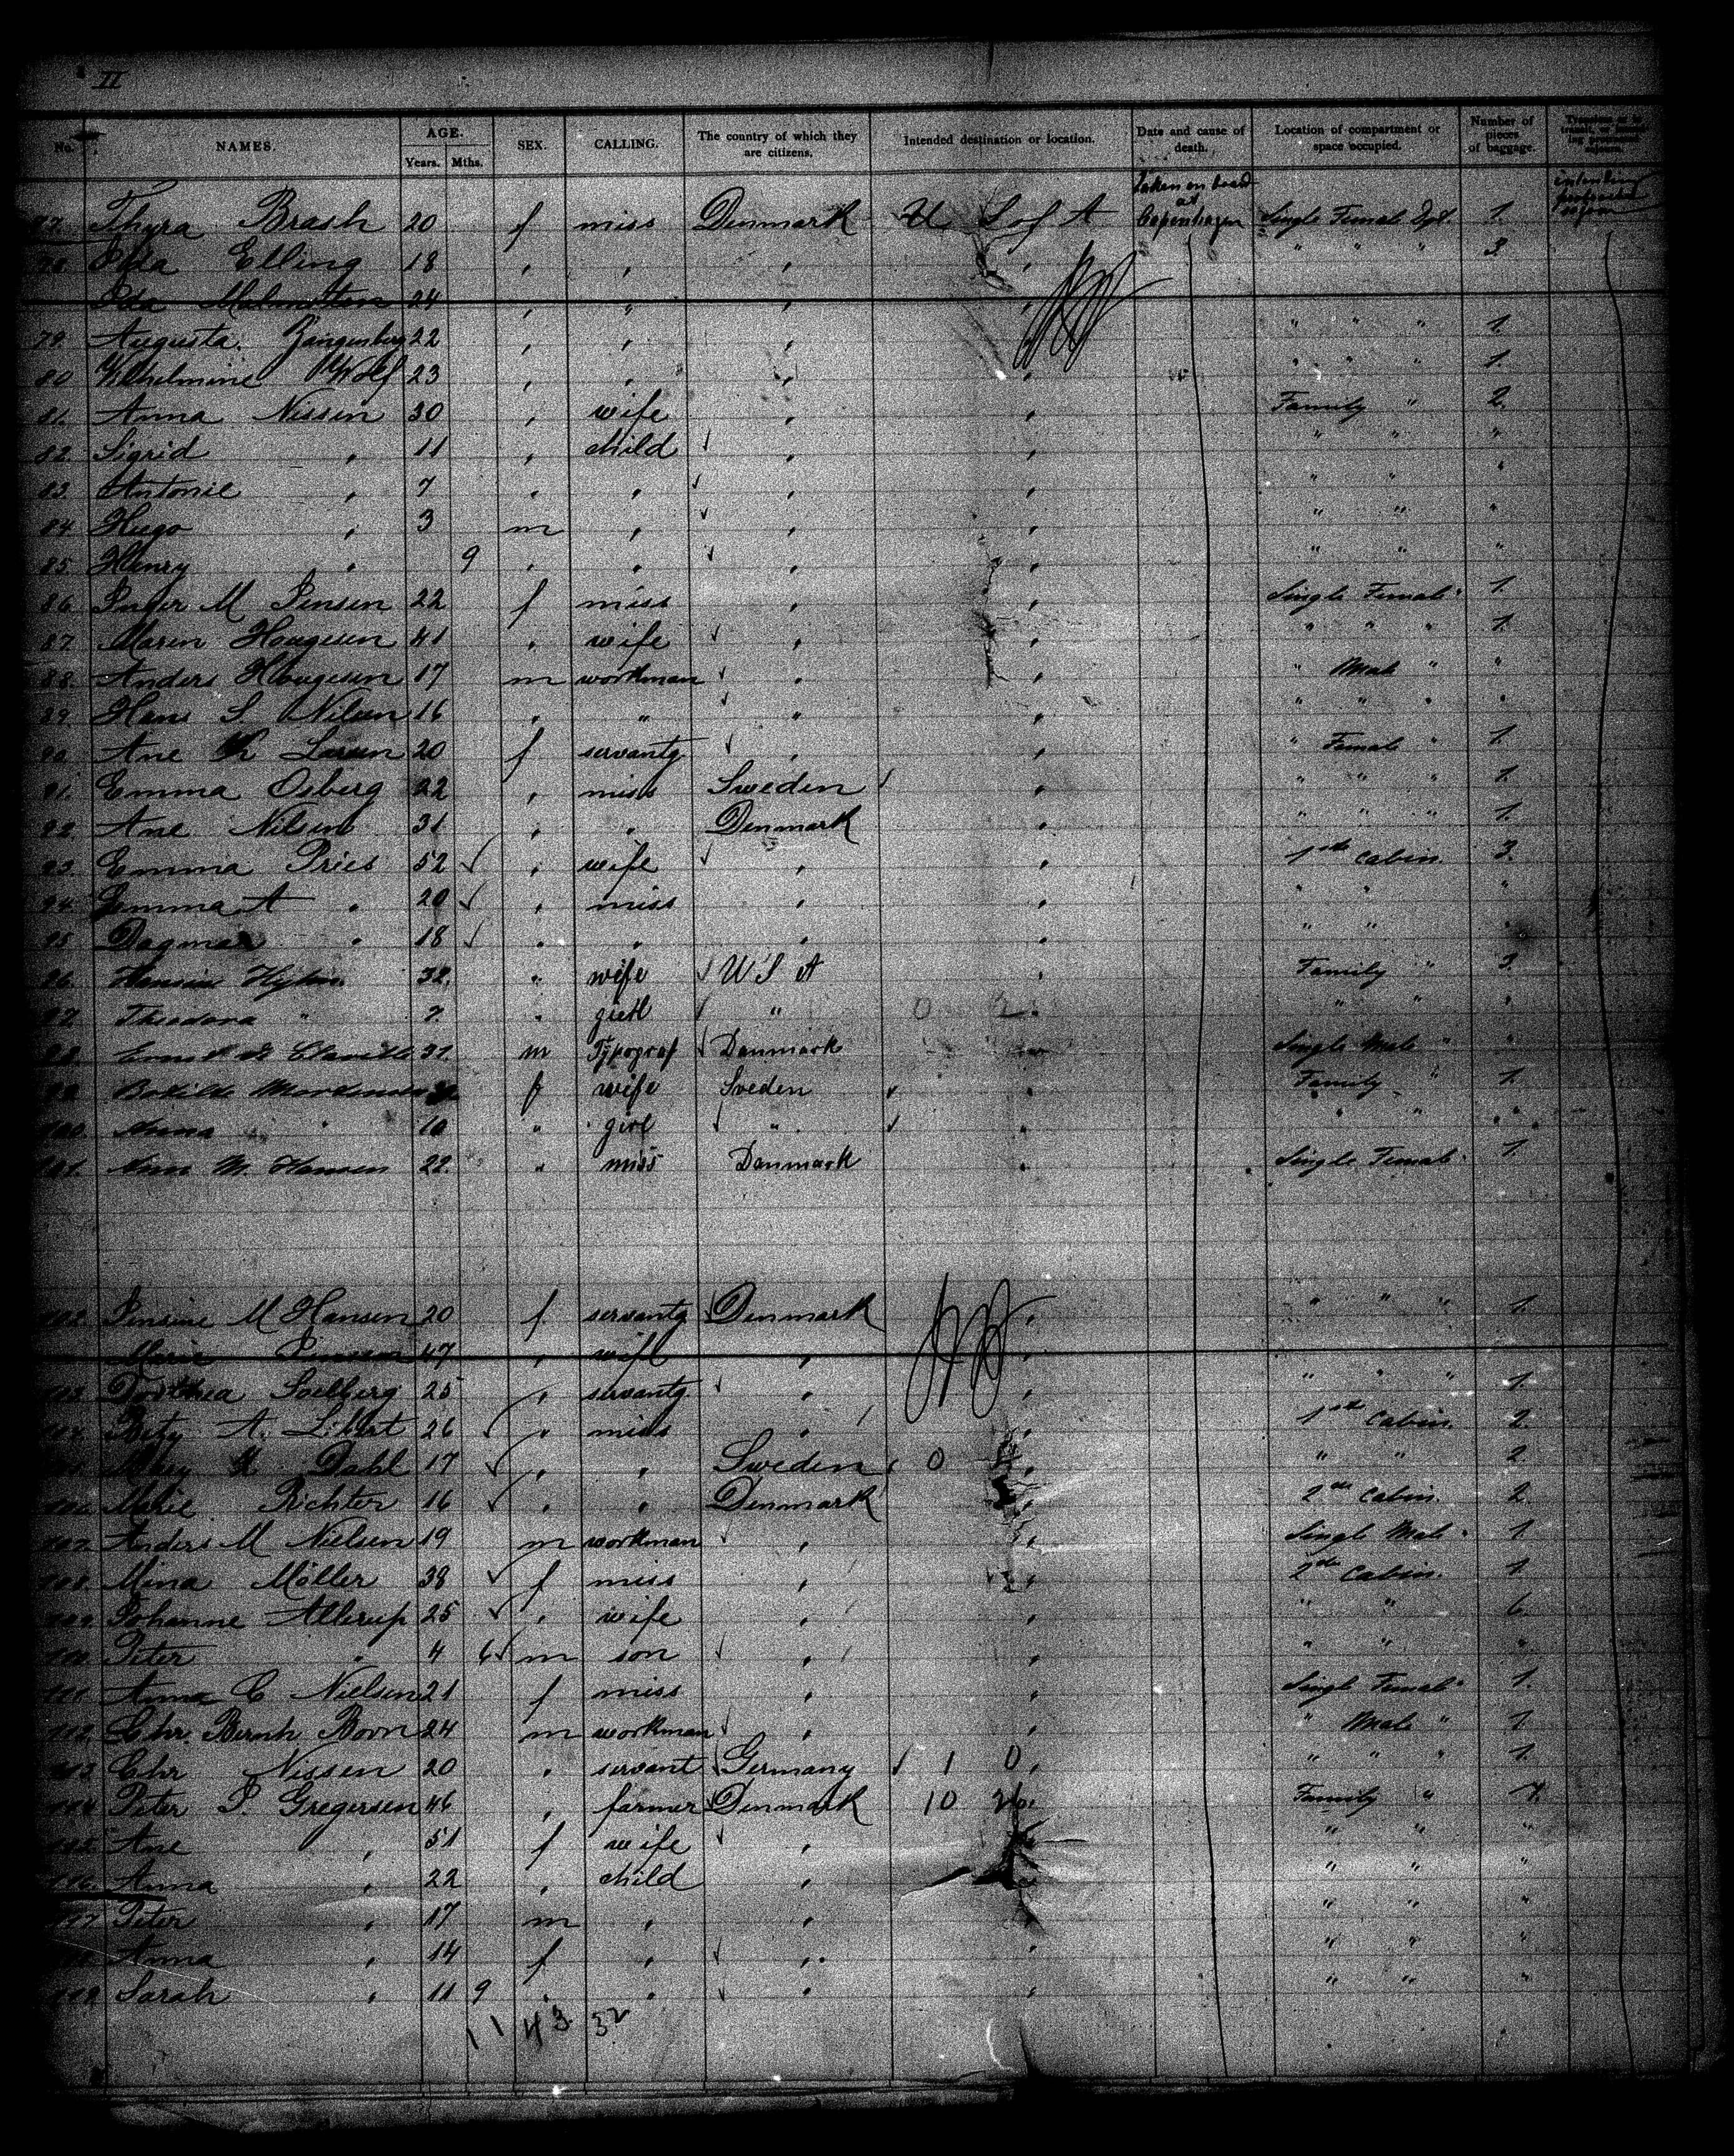 II
No. NAMES. AGE. Years. Mths. SEX. CALLING. The country of which they are citizens. Intended destination or location. Date and cause of death. Location of compartment or space occupied. Number of pieces of baggage.
77. Thyra Brash 20 f miss Denmark U S of A Taken on board at Copenhagen Single Female Dpt. 1. intending protracted sojourn
78 Elling 18 , , , , " " " 3
Ida 24 , " , ,
79. Augusta Zangenberg 22 , , , , " " " 1.
80 Wilhelmine Wolf 23 , , , , " " " 1.
81. Anna Nissen 30 , wife , , Family " 2.
82. Sigrid , 11 , child , , " " "
83. Antonie , 7 , , , , " " "
84 Hugo , 3 m , , , " " "
85. Henry , 9 , , , , " " "
86. Inger M Jensen 22 f miss , , Single Female " 1.
87. Maren Hougesen 41 , wife , , " " " 1.
88. Anders Hougesen 17 m workman , , " Male " "
89. Hans S. Nilsen 16 , " " , " " " "
90. Ane K Larsen 20 f servantg , , " Female " 1.
91. Emma Osberg 22 , miss Sweden , " " " 1.
92. Ane Nilsen 31 , , Denmark , " " " 1.
93. Emma Pries 52 , wife , , 1st Cabin. 3.
94. Gemma A , 20 , miss , , " " "
95 Dagmar , 18 , , , , " " "
96. 32. " wife U S A , Family " 3.
97. Theodora " 7. " girl " " " "
98. 31. m Typograf Danmark Single Male " "
99 Bothilde f wife Sveden , Family " 1.
100. Anna " 10 " girl " , " " "
101. M. Hansen 22. " miss Danmark , Single Female " 1.
102. Jensine M Hansen 20 f servantg Denmark , " " " 1.
Marie 47 , wife , ,
103. Dorthea Soelberg 25 , servantg , , " " " 1.
104. Bety A. Libert 26 " miss , , 1st Cabin. 2.
105. Dahl 17 , , Sweden 0 , " " 2.
106. Marie Richter 16 , " Denmark , 2de Cabin. 2.
107. Anders M Nielsen 19 m workman , , Single Male " 1.
108. Mina Möller 38 f miss , , 2de Cabin. 1.
109. Johanne Allerup 25 , wife , , " " 6.
110. Peter " 4 6 m son , , " " "
111. Anna C Nielsen 21 f miss , , Single Female " 1.
112. Chr. Bernh Bovn 24 m workman , , " Male " 1.
113 Chr Nissen 20 , servant Germany 1 0 , " " " 1.
114 Peter P. Gregersen 46 , farmer Denmark 10 26 , Family " 7.
115. Ane , 51 f wife , , " " "
116. Anna , 22 , child , , " " "
117 Peter , 17 m , , , " " "
Anna , 14 f , , , " " "
119 Sarah , 11 9 , , , , " " "
11 43 32